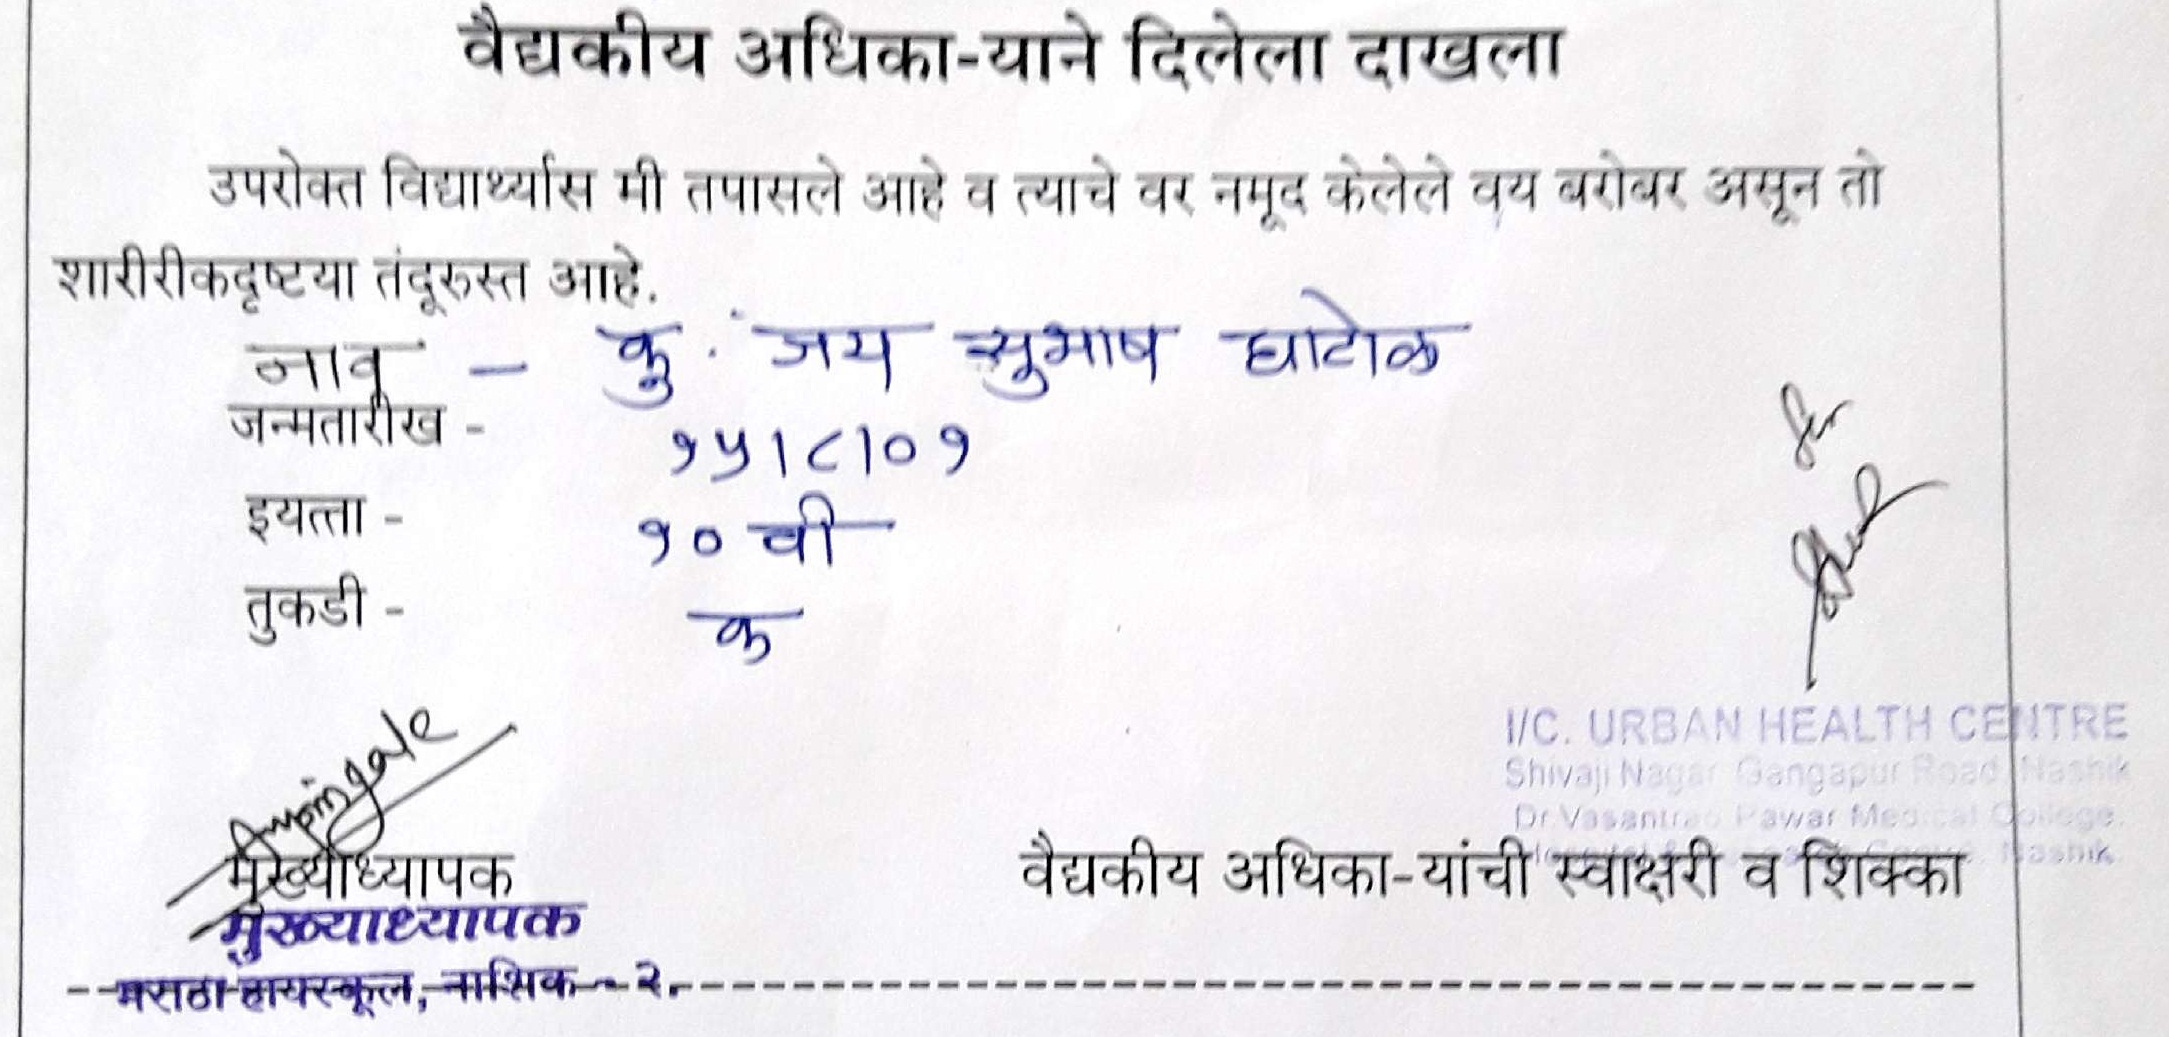 वैद्यकीय अधिका-याने दिलेला दाखला
उपरोक्त विद्यार्थ्यास मी तपासले आहे व त्याचे वर नमूद केलेले वय बरोबर असून तो
शारीरीकदृष्टया तंदूरुस्त आहे.
नाव - कु. जय सुभाष घाटोळ
जन्मतारीख - १५।८।०१
इयत्ता - १० वी
तुकडी - क
I/C. URBAN HEALTH CENTRE
Shivaji Nagar Gangapur Road Nashik
Dr.Vasantrao Pawar Medical College.
Nashik.
मुख्याध्यापक वैद्यकीय अधिका-यांची स्वाक्षरी व शिक्का
मुख्याध्यापक
मराठा हायस्कूल, नाशिक - २.